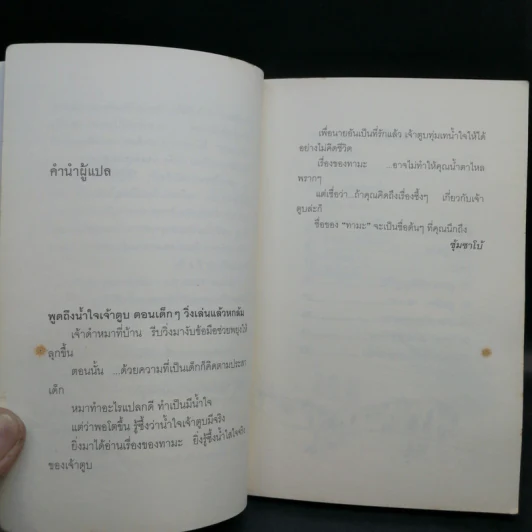 คำนำผู้แปล
พูดถึงน้ำใจเจ้าตูบ ตอนเด็กๆ วิ่งเล่นแล้วหกล้ม
เจ้าดำหมาที่บ้าน รีบวิ่งมางับข้อมือช่วยพยุงให้
ลุกขึ้น
ตอนนั้น ...ด้วยความที่เป็นเด็กก็คิดตามประสา
เด็ก
หมาทำอะไรแปลกดี ทำเป็นมีน้ำใจ
แต่ว่าพอโตขึ้น รู้ซึ้งว่าน้ำใจเจ้าตูบมีจริง
ยิ่งมาได้อ่านเรื่องของทามะ ยิ่งรู้ซึ้งน้ำใจจริง
ของเจ้าตูบ
เพื่อนายอันเป็นที่รักแล้ว เจ้าตูบทุ่มเทน้ำใจให้ได้
อย่างไม่คิดชีวิต
เรื่องของทามะ ...อาจไม่ทำให้คุณน้ำตาไหล
พรากๆ
แต่เชื่อว่า...ถ้าคุณคิดถึงเรื่องซึ้งๆ เกี่ยวกับเจ้า
ตูบล่ะก็
ชื่อของ "ทามะ" จะเป็นชื่อต้นๆ ที่คุณนึกถึง
ซุ้มซาโบ้